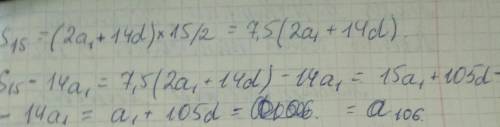 S₁₅ = (2a₁ + 14d) × 15/2 = 7,5 (2a₁ + 14d).
S₁₅ - 14a₁ = 7,5 (2a₁ + 14d) - 14a₁ = 15a₁ + 105d -
- 14a₁ = a₁ + 105d = = a₁₀₆.